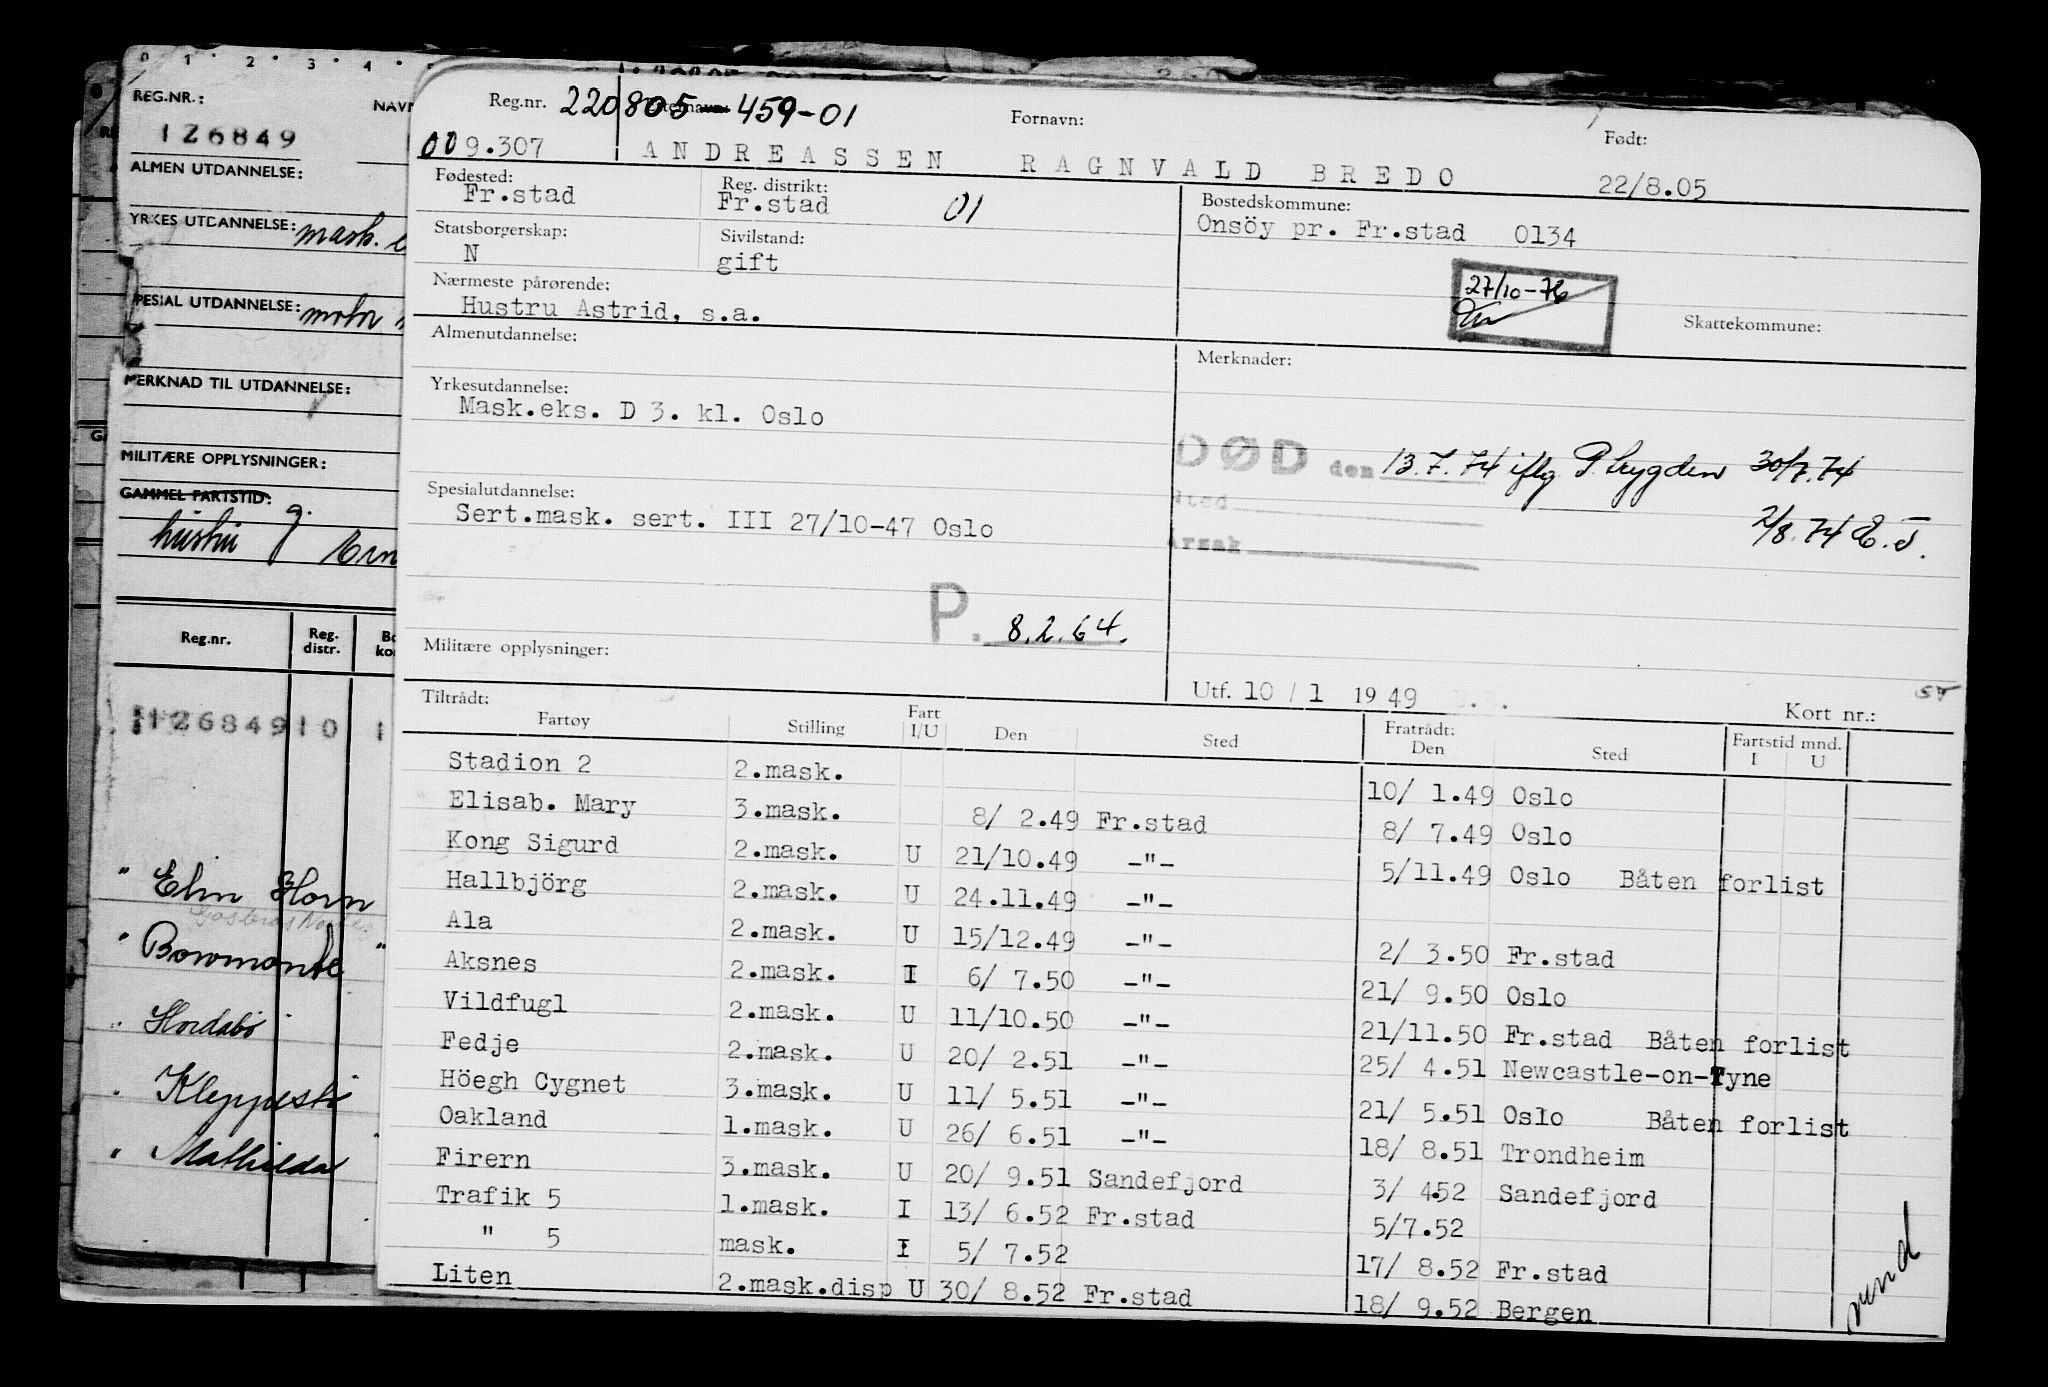 0 1 2 3 4
REG.NR.:
NAVN
126849
ALMEN UTDANNELSE:
YRKES UTDANNELSE: mask.
SPESIAL UTDANNELSE: motor
MERKNAD TIL UTDANNELSE:
MILITÆRE OPPLYSNINGER:
GAMMEL FARTSTID:
g.
hustru
Reg.nr. Reg. distr.
126849 10 1
" Elin Horn
" Bowmonte "
" Hordabø
" Kleppestø
" Mathilda
Reg.nr. 220805 Etternavn: 459-01 Fornavn: Født:
009.307 ANDREASSEN RAGNVALD BREDO 22/8.05
Fødested: Reg. distrikt: Bostedskommune:
Fr.stad Fr.stad 01 Onsöy pr. Fr.stad 0134
Statsborgerskap: Sivilstand:
N gift
27/10-76
Nærmeste pårørende:
Hustru Astrid, s.a.
Skattekommune:
Almenutdannelse: Merknader:
Yrkesutdannelse:
Mask.eks. D 3. kl. Oslo
DØD den 13.7.74 iflg P.trygden 30/7.74
Sted
2/8.74 E.J.
Årsak
Spesialutdannelse:
Sert.mask. sert. III 27/10-47 Oslo
P. 8.2.64.
Militære opplysninger:
Utf. 10 / 1 1949
Kort nr.:
Tiltrådt: Fratrådt: Fartstid mnd.
Fartøy Stilling Fart I/U Den Sted Den Sted I U
Stadion 2 2.mask. 10/ 1.49 Oslo
Elisab. Mary 3.mask. 8/ 2.49 Fr.stad 8/ 7.49 Oslo
Kong Sigurd 2.mask. U 21/10.49 -"- 5/11.49 Oslo Båten forlist
Hallbjörg 2.mask. U 24.11.49 -"-
Ala 2.mask. U 15/12.49 -"- 2/ 3.50 Fr.stad
Aksnes 2.mask. I 6/ 7.50 -"- 21/ 9.50 Oslo
Vildfugl 2.mask. U 11/10.50 -"- 21/11.50 Fr.stad Båten forlist
Fedje 2.mask. U 20/ 2.51 -"- 25/ 4.51 Newcastle-on-Tyne
Höegh Cygnet 3.mask. U 11/ 5.51 -"- 21/ 5.51 Oslo Båten forlist
Oakland 1.mask. U 26/ 6.51 -"- 18/ 8.51 Trondheim
Firern 3.mask. U 20/ 9.51 Sandefjord 3/ 4.52 Sandefjord
Trafik 5 1.mask. I 13/ 6.52 Fr.stad 5/7.52
" 5 mask. I 5/ 7.52 17/ 8.52 Fr.stad
Liten 2.mask.disp U 30/ 8.52 Fr.stad 18/ 9.52 Bergen